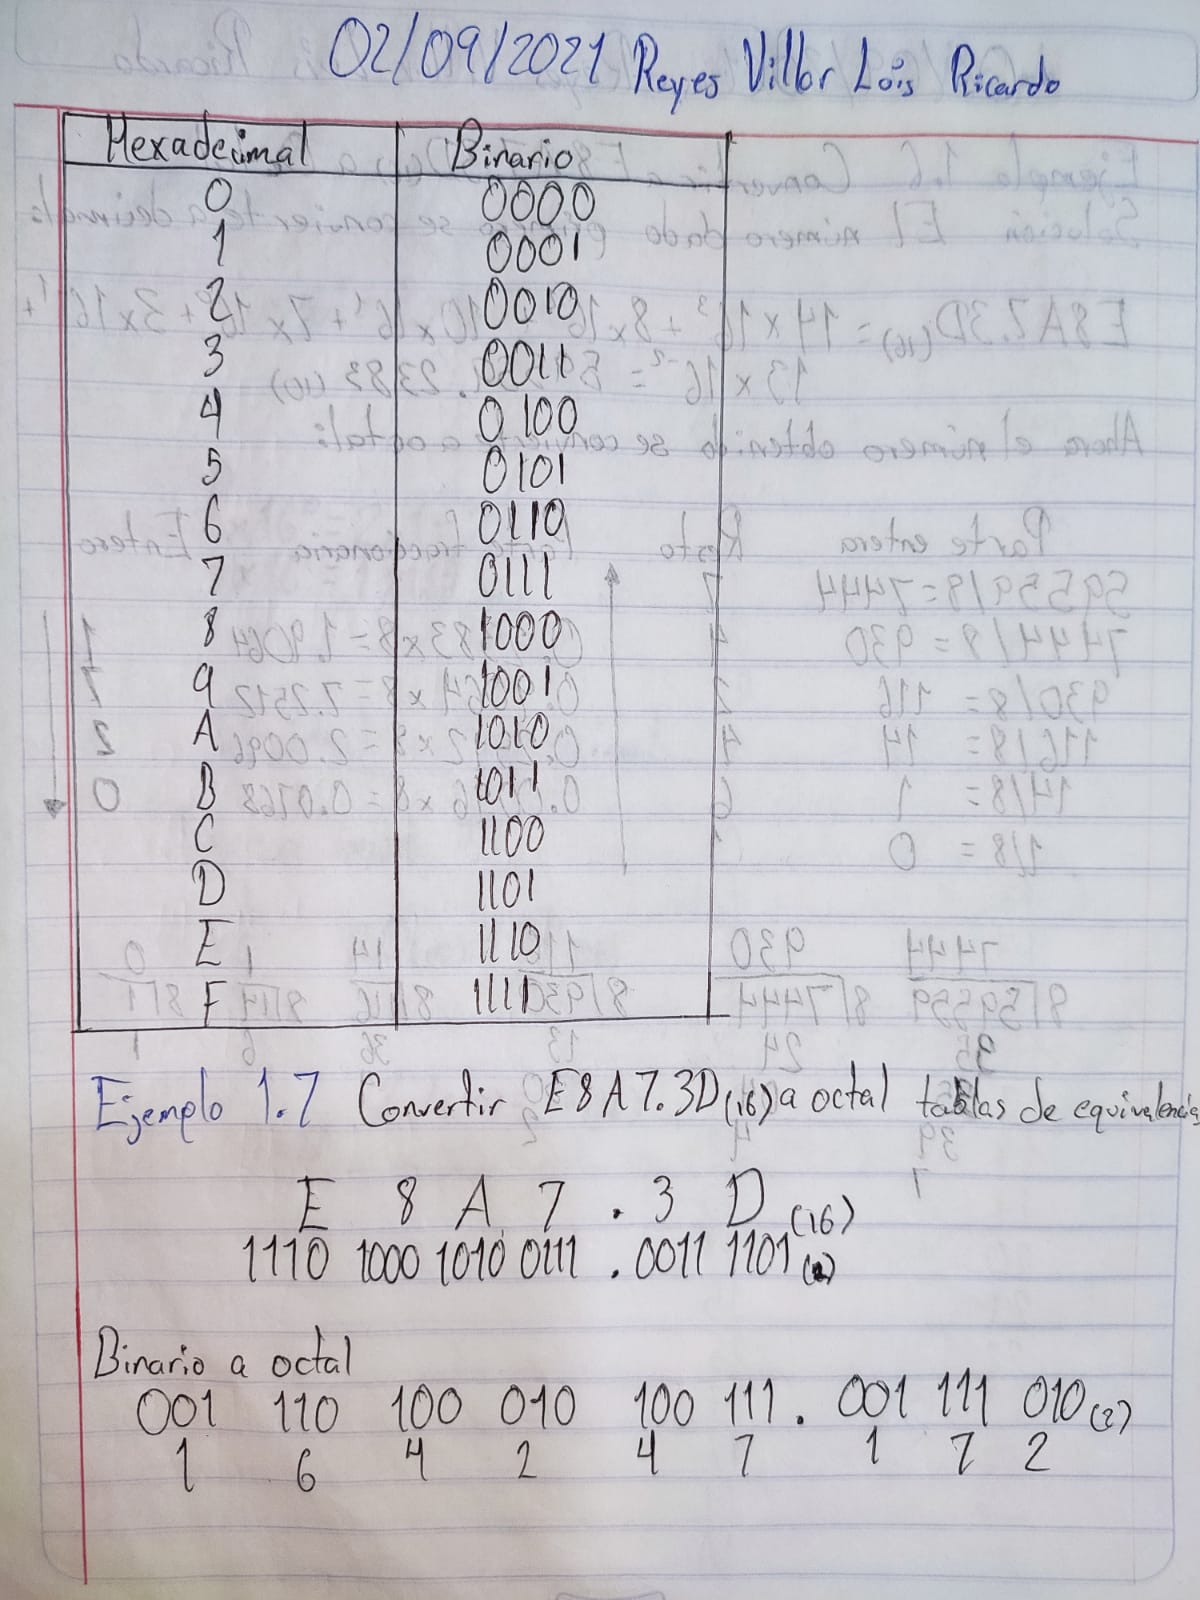 02/09/2021 Reyes Villar Luis Ricardo
Hexadecimal Binario
0 0000
1 0001
2 0010
3 0011
4 0100
5 0101
6 0110
7 0111
8 1000
9 1001
A 1010
B 1011
C 1100
D 1101
E 1110
F 1111
Ejemplo 1.7 Convertir E8A7.3D(16) a octal tablas de equivalencia
E 8 A 7 . 3 D (16)
1110 1000 1010 0111 . 0011 1101 (2)
Binario a octal
001 110 100 010 100 111 . 001 111 010 (2)
1 6 4 2 4 7 1 7 2